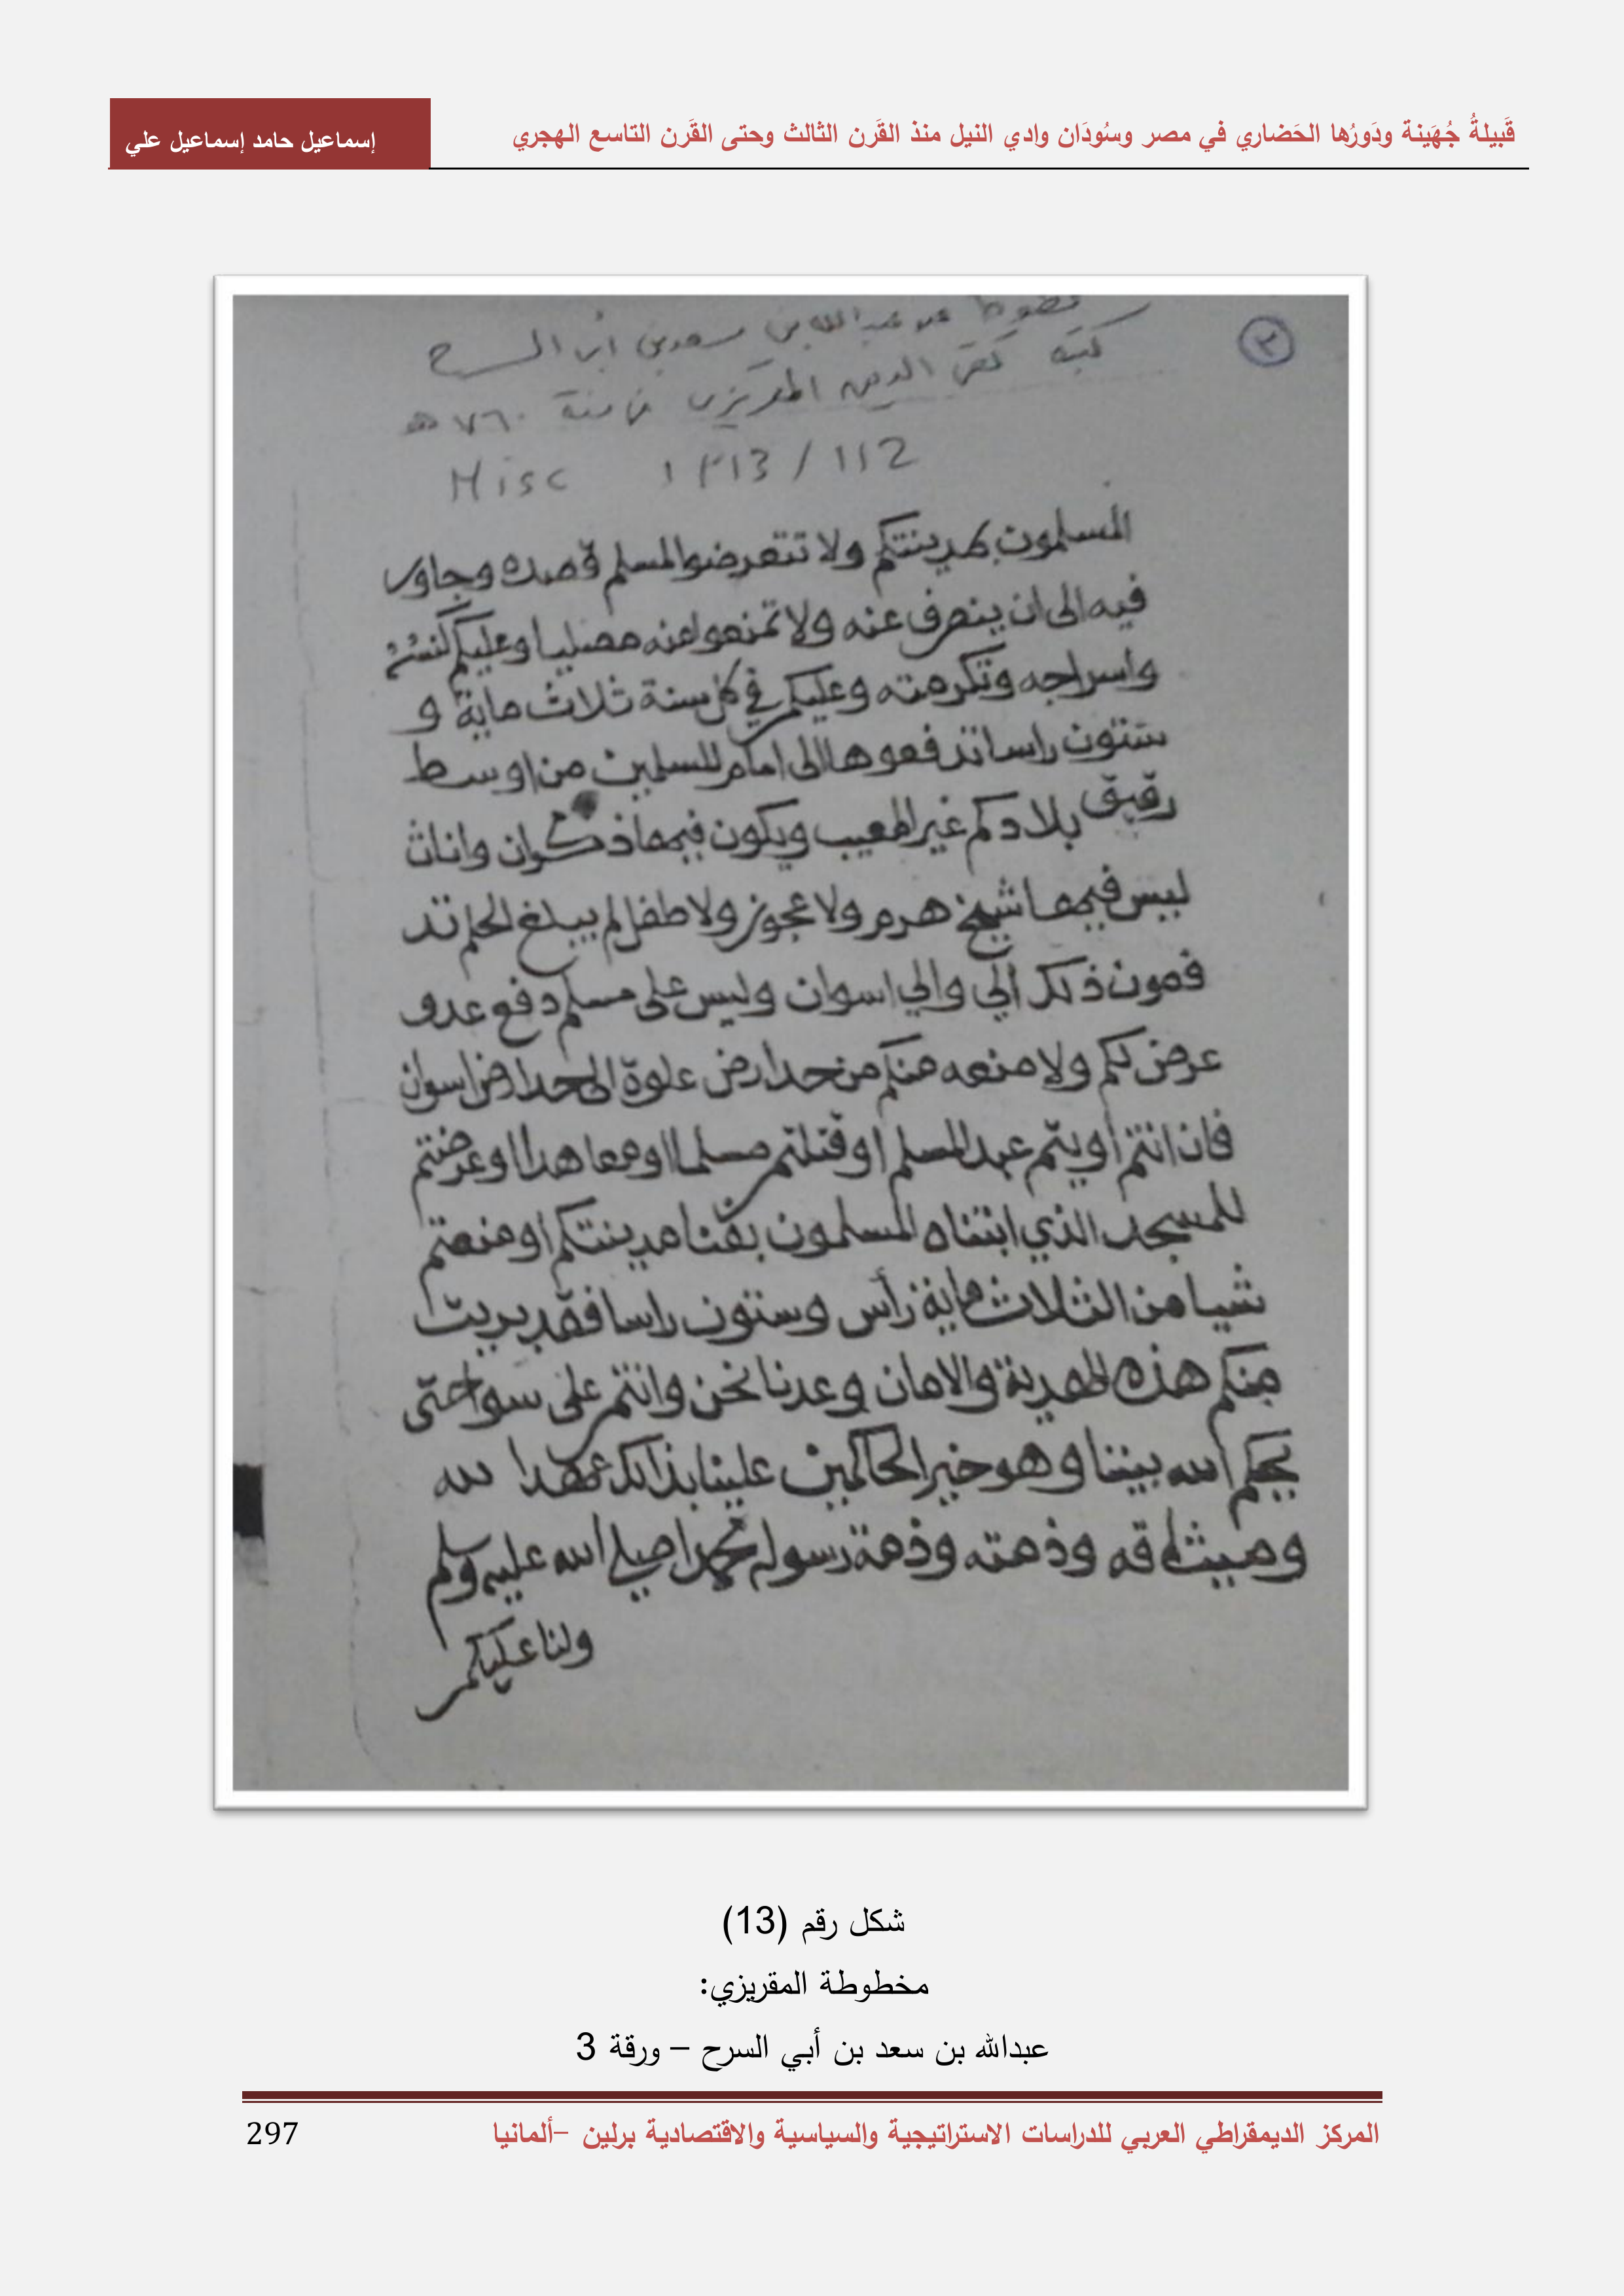 قَبيلةُ جُهَينة ودَورُها الحَضاري في مصر وسُودَان وادي النيل منذ القَرن الثالث وحتى القَرن التاسع الهجري
إسماعيل حامد إسماعيل علي
٣
عبد الله بن سعد بن أبى السرح
كتبه تقى الدين المقريزى فى سنة ٧٦٠ هـ
Misc ١٣13 / 112
المسلمون بمدينتكم ولا تتعرضوا لمسلم قصده وجاور
فيه الى ان ينصرف عنه ولا تمنعوا عنه مصليا وعليكم كنسه
واسراجه وتكرمته وعليكم في كل سنة ثلاث ماية و
ستون راسا تدفعوها الى امام المسلمين من اوسط
رقيق بلادكم غير المعيب ويكون فيها ذكران واناث
ليس فيها شيخ هرم ولا عجوز ولا طفل لم يبلغ الحلم تد
فعون ذلك الي والي اسوان وليس على مسلم دفع عدو
عرض لكم ولا منعه منكم من حد ارض علوة الى حد ارض اسوان
فان انتم اويتم عبد المسلم او قتلتم مسلما او معاهدا او عرضتم
للمسجد الذي ابتناه المسلمون بفنا مدينتكم او منعتم
شيا من الثلاث ماية رأس وستون راسا فقد بريت
منكم هذه الهدنة والامان وعدنا نحن وانتم على سوا حتى
يحكم الله بيننا وهو خير الحاكمين علينا بذلك عهد الله
وميثاقه وذمته وذمة رسوله محمد صلي الله عليه وسلم
ولنا عليكم
شكل رقم (13)
مخطوطة المقريزي:
عبدالله بن سعد بن أبي السرح – ورقة 3
المركز الديمقراطي العربي للدراسات الاستراتيجية والسياسية والاقتصادية برلين –ألمانيا
297